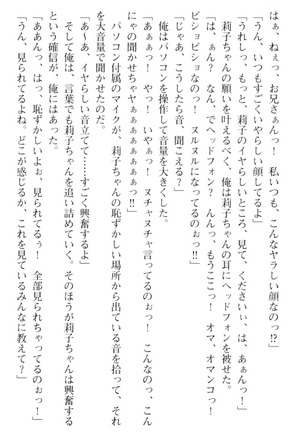 はぁ、ねぇっ、お兄さぁんっ！　私いつも、こんなヤラしい顔なのっ!?」
「うん、いつもすごくいやらしい顔してるよ」
「うれしっ、もっと、莉子のイヤらしいところ、見て、くださいぃ、は、あぁんっ！」
莉子ちゃんの願いを叶えるべく、俺は莉子ちゃんの耳にヘッドフォンを被せた。
「はぁ、んっ！　なん、でヘッドフォン？　んんっ、もうここっ！　オマ、オマンコっ！
ビショビショなのっ！　ヌルヌルになってるのぉっ!!」
「じゃあ、こうしたら音、聞こえる？」
俺はパソコンを操作して音量を大きくした。
「あぁぁっ！　やっ！　いやぁっ！　ヌチャヌチャ言ってるのぉっ！　こんなのっ、こん
なの聞かせちゃヤぁぁぁぁぁぁっ!!」
パソコン付属のマイクが、莉子ちゃんの恥ずかしい場所から出ている音を拾って、それ
を大音量で聞かせたのだ。
「ぁあ、イヤらしい音立てて……すごく興奮するよ」
そして俺は、言葉でも莉子ちゃんを追い詰めていく。そのほうが莉子ちゃんは興奮する
という確信が、俺にはあった。
「ああんっ、はっ、恥ずかしいよぉ、見られてるぅ！　全部見られちゃってるのぉっ！」
「うん、見られてるよね。どこが感じるか、これを見ているみんなに教えて？」